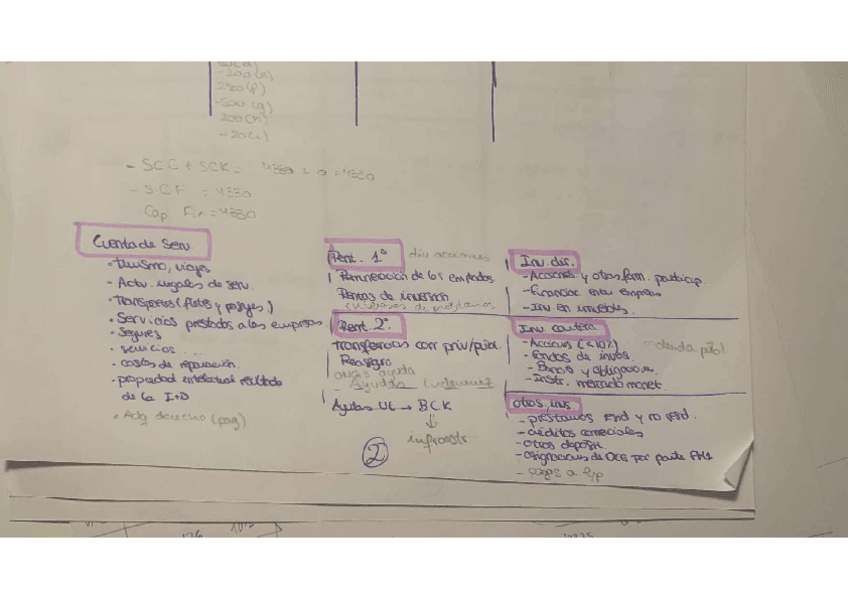 -200(e)
2500(f)
-500(g)
200(h)
-20(i)
- SCC + SCK = 4330 + 0 = 4330
- SCF = 4330
- Cap. Fin = 4330
Cuenta de Serv.
• Turismo, viajes
- Activ. ilegales de serv.
• Transportes (fletes y pasajes)
• Servicios prestados a las empresas
• Seguros
• servicios ....
• costes de reparación.
• propiedad intelectual resultado
de la I+D
• Adq derecho (pag)
Rent. 1ª div acciones
Remuneración de los empleados
Rentas de inversión
intereses de préstamos
Rent. 2ª
Transferencias corr priv/púb.
Reaseguro
ONGs ayuda
- Ayudas
Ayudas UE → BCK
↓
infraestr
Inv. dir.
- Acciones y otras form. particip.
- Financiac. entre empresas
- Inv en inmuebles.
Inv cartera
- Acciones (<10%) - deuda públ
- Fondos de invers.
- Bonos y obligaciones.
- Instr. mercado monet.
Otras invs.
- préstamos
- créditos comerciales
- otros depósit
- asignaciones de DEG por parte FMI
- pagos a l/p
2